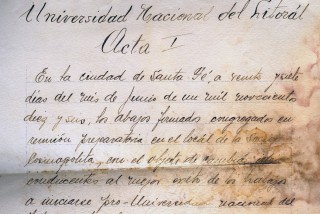 Universidad Nacional del Litorál
Acta I
En la ciudad de Santa Fé a veinte y siete
dias del mes de Junio de mil novecientos
diez y seis, los abajo firmados congregados en
reunión preparatoria en el local de la
con el objeto de cambiar
conducentes al mejor éxito de los trabajos
a iniciarse pro-Universidad nacional del